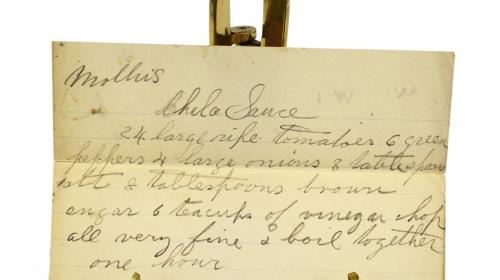 Mollis
Chila Sauce
24 large ripe tomatoes 6 green
peppers 4 large onions 8 tablespoons
salt 8 tablespoons brown
sugar 6 teacups of vinegar chop
all very fine & boil together
one hour